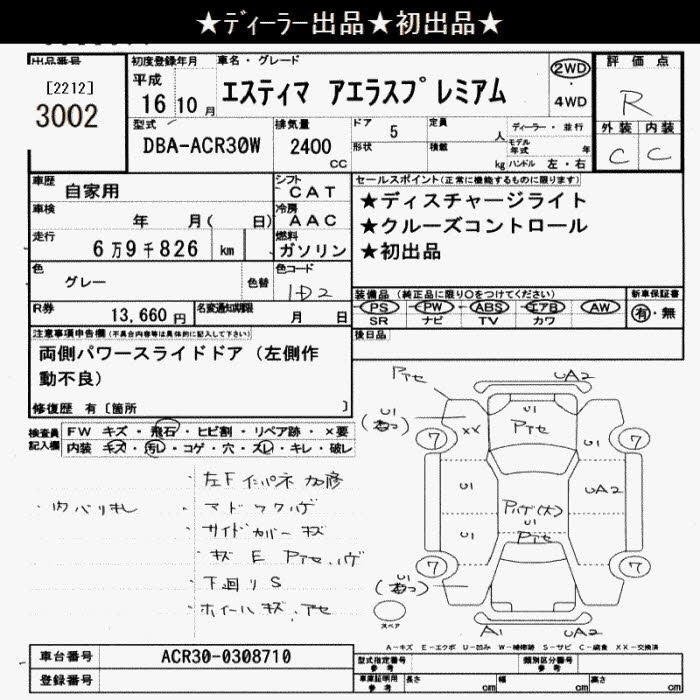 ★ディーラー出品★初出品★
出品番号
[2212]
3002
初度登録年月
平成
16 10 月
車名・グレード
エスティマ アエラスプレミアム
2WD
・
4WD
評価点
R
外装 内装
C C
型式
DBA-ACR30W
排気量
2400
CC
ドア 5
定員 人
形状
積載 kg
ディーラー・並行
モデル年式 年
ハンドル 左・右
車歴
自家用
シフト
CAT
車検
年 月( 日)
冷房
AAC
走行
6万9千826 km
燃料
ガソリン
色
グレー
色替
色コード
1D2
R券
13,660円
名変通知期限
月 日
セールスポイント(正常に機能するものに限ります)
★ディスチャージライト
★クルーズコントロール
★初出品
装備品 (純正品に限り○をつけてください)
PS PW ABS エアB AW
SR ナビ TV カワ
新車保証書
有・無
後日品
注意事項申告欄(不具合内容等は具体的に記入して下さい)
両側パワースライドドア(左側作
動不良)
修復歴 有〔箇所 〕
検査員
記入欄
FW キズ・飛石・ヒビ割・リペア跡・×要
内装 キズ・汚レ・コゲ・穴・スレ・キレ・破レ
・左Fインパネ加修
・内バリキレ
・マドワクハゲ
・サイドカバーキズ
・キズ E アセ、ハゲ
・下廻りS
・ホイールキズ、アセ
アセ
UA2
U1
U1
アセ
XX
7
7
U1
U1
UA2
U1
U1
アセ
7
7
U1
スペア
A1
UA2
A-キズ E-エクボ U-凹み W-補修跡 S-サビ C-腐食 XX-交換済
車台番号
ACR30-0308710
登録番号
型式指定番号
参考
類別区分番号
参考
車庫証明用
参考
長さ cm
幅 cm
高さ cm